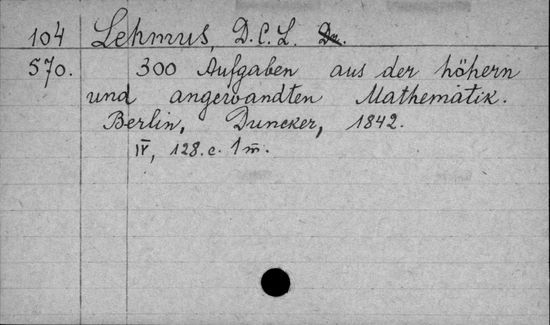 104 Lehmus, D. C. L. Dr.
570. 300 Aufgaben aus der höhern
und angewandten Mathematik.
Berlin, Duncker, 1842.
IV, 128. c. 1 m.